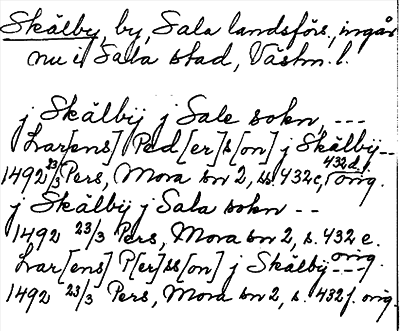 Skälby, by, Sala landsförs., ingår
nu i Sala stad, Västm. l.
j Skälbij j Sale sokn, ---
Lar[ens] Ped[er]s[on] j Skälby --
1492 23/3 Pers, Mora sn 2, ss. 432c, 432d. orig.
j Skälbij j Sala sokn --
1492 23/3 Pers, Mora sn 2, s. 432 e. orig.
Lar[ens] P[er]ss[on] j Skälby ---
1492 23/3 Pers, Mora sn 2, s. 432f. orig.